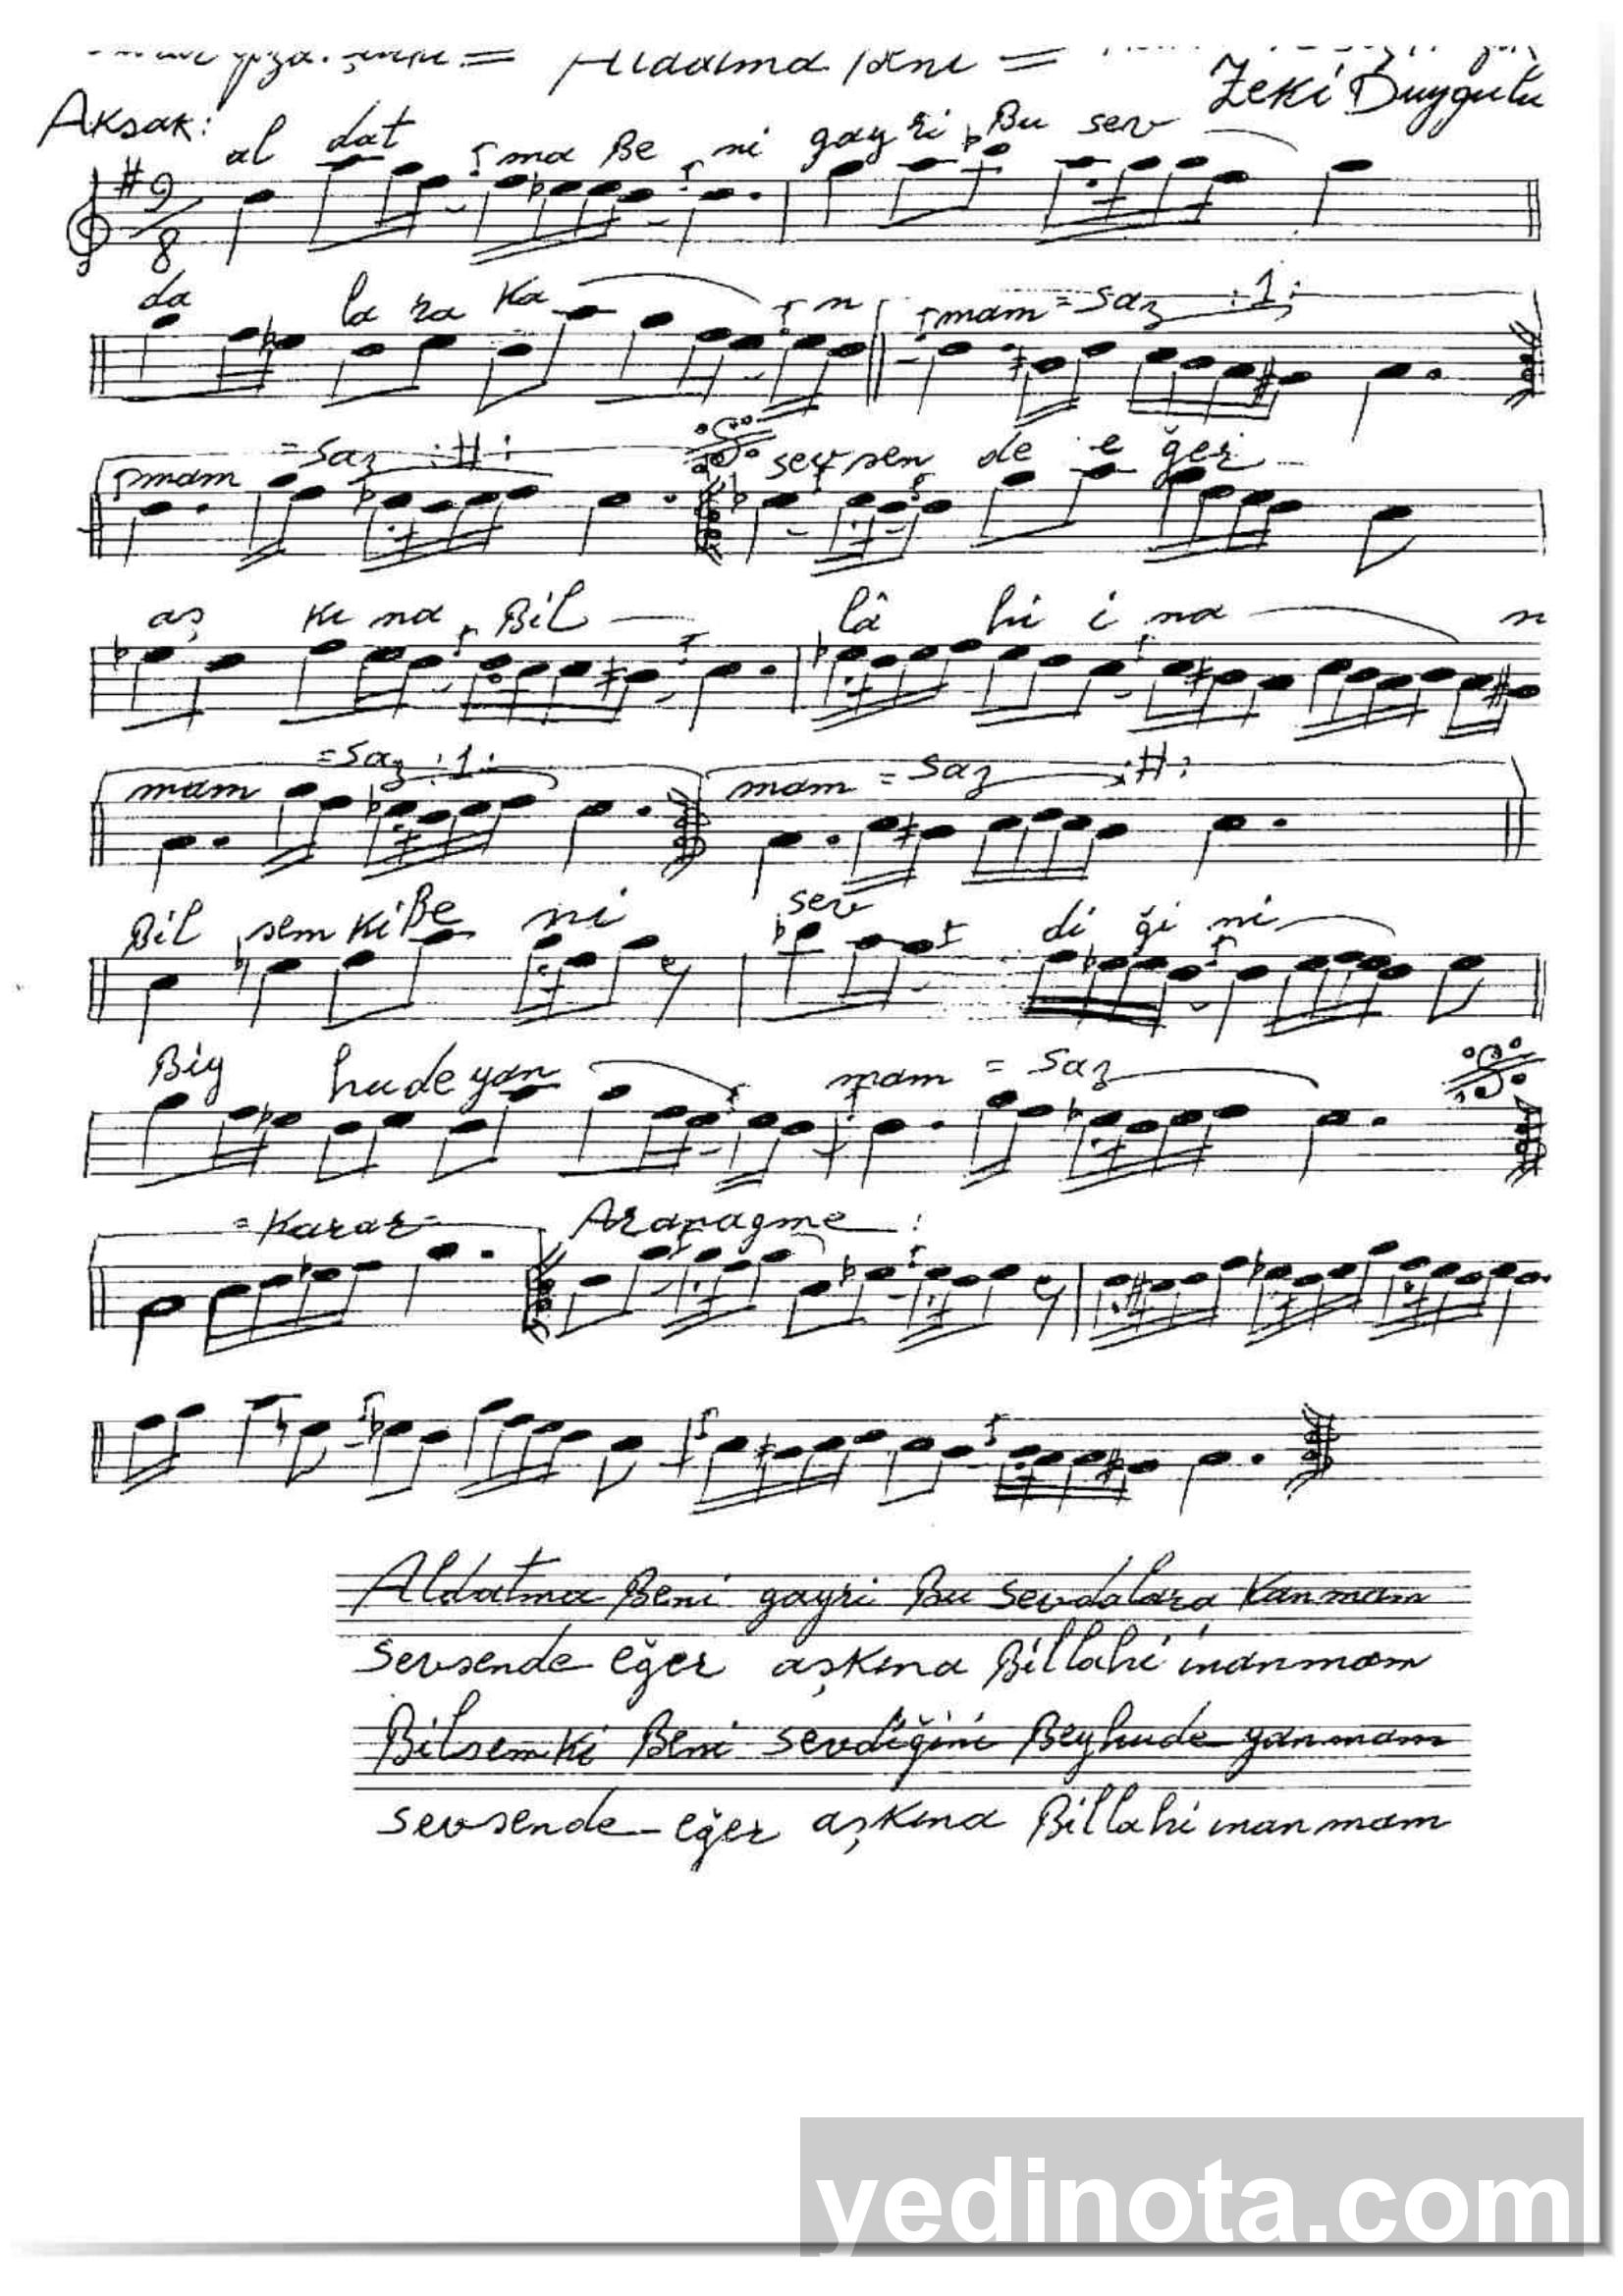 = Aldatma Beni =
Zeki Duygulu
Aksak:
9/8
al dat ma Be ni gayri Bu sev
da la ra Ka n mam = Saz :1:
mam = Saz :II: sev sen de e ğer
aş kı na Bil lâ hi i na n
mam = Saz :1: mam = Saz :II:
Bil sem ki Be ni sev di ği ni
Biy hu de yan mam = Saz
= Karar = Aranağme :
Aldatma Beni gayri Bu sevdalara Kanmam
Sevsende eğer aşkına Billahi inanmam
Bilsemki Beni sevdiğini Beyhude yanmam
sevsende - eğer aşkına Billahi inanmam
yedinota.com